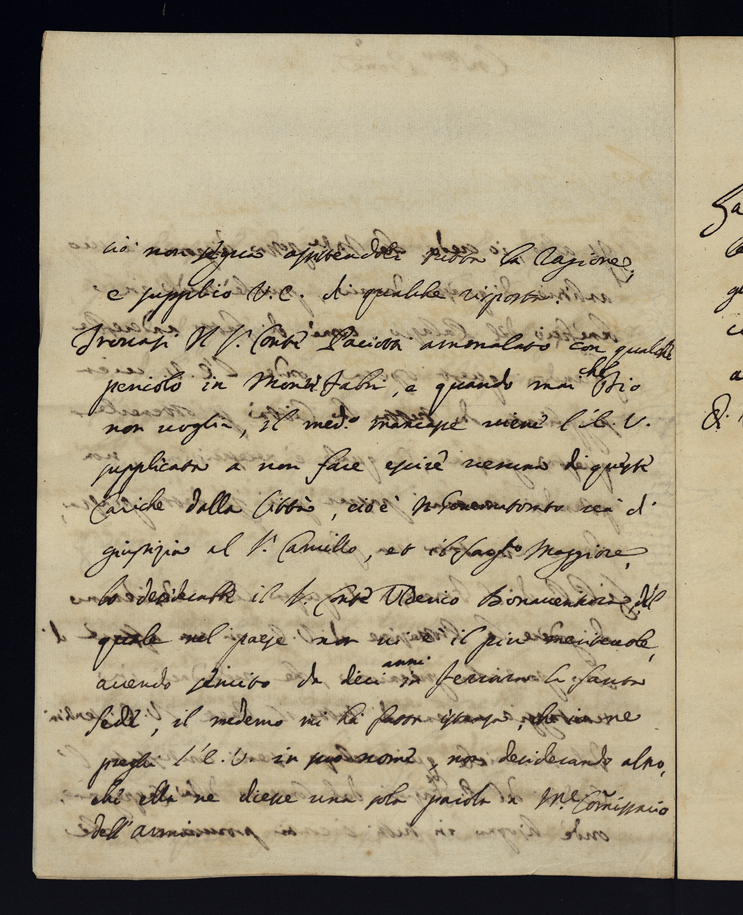 ciò non segua assistendoli tutta la ragione,
e supplico V. E. di qualche risposta.
Trovasi Il S.r Conte Paciotti ammalato con qualche
pericolo in Monte fabri, e quando mai che Dio
non voglia, il med.o mancasse viene l'E. V.
supplicata a non fare escire nessuna di queste
Cariche dalla Città, cioè di
giustizia al S.r Camillo, et il Maggiore,
lo desiderarebbe il S.r Conte Federico Bonaventura, del
quale nel paese non vi è il più meritevole,
avendo servito da dieci anni in ferrara la santa
sede, il medemo mi ha fatto istanza, che io ne
preghi l'E. V. in suo nome, non desiderando altro,
che ella ne dicesse una sola parola a M.r Commissario
dell'armi